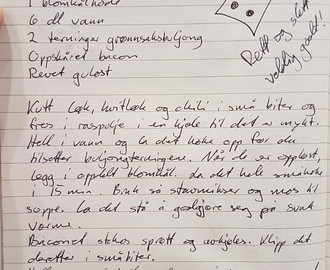 1 blomkålhode
6 dl vann
2 terninger grønnsaksbuljong
Oppskåret bacon
Revet gulost
Rett og slett
veldig godt!
Kutt løk, hvitløk og chili i små biter og
fres i rapsolje i en kjele til det er mykt.
Hell i vann og la det koke opp før du
tilsetter buljongterningene. Når de er oppløst,
legg i oppdelt blomkål. La det hele småkoke
i 15 min. Bruk så stavmikser og mos til
suppe. La det stå å godgjøre seg på svak
varme.
Baconet stekes sprøtt og avkjøles. Klipp det
deretter i småbiter.